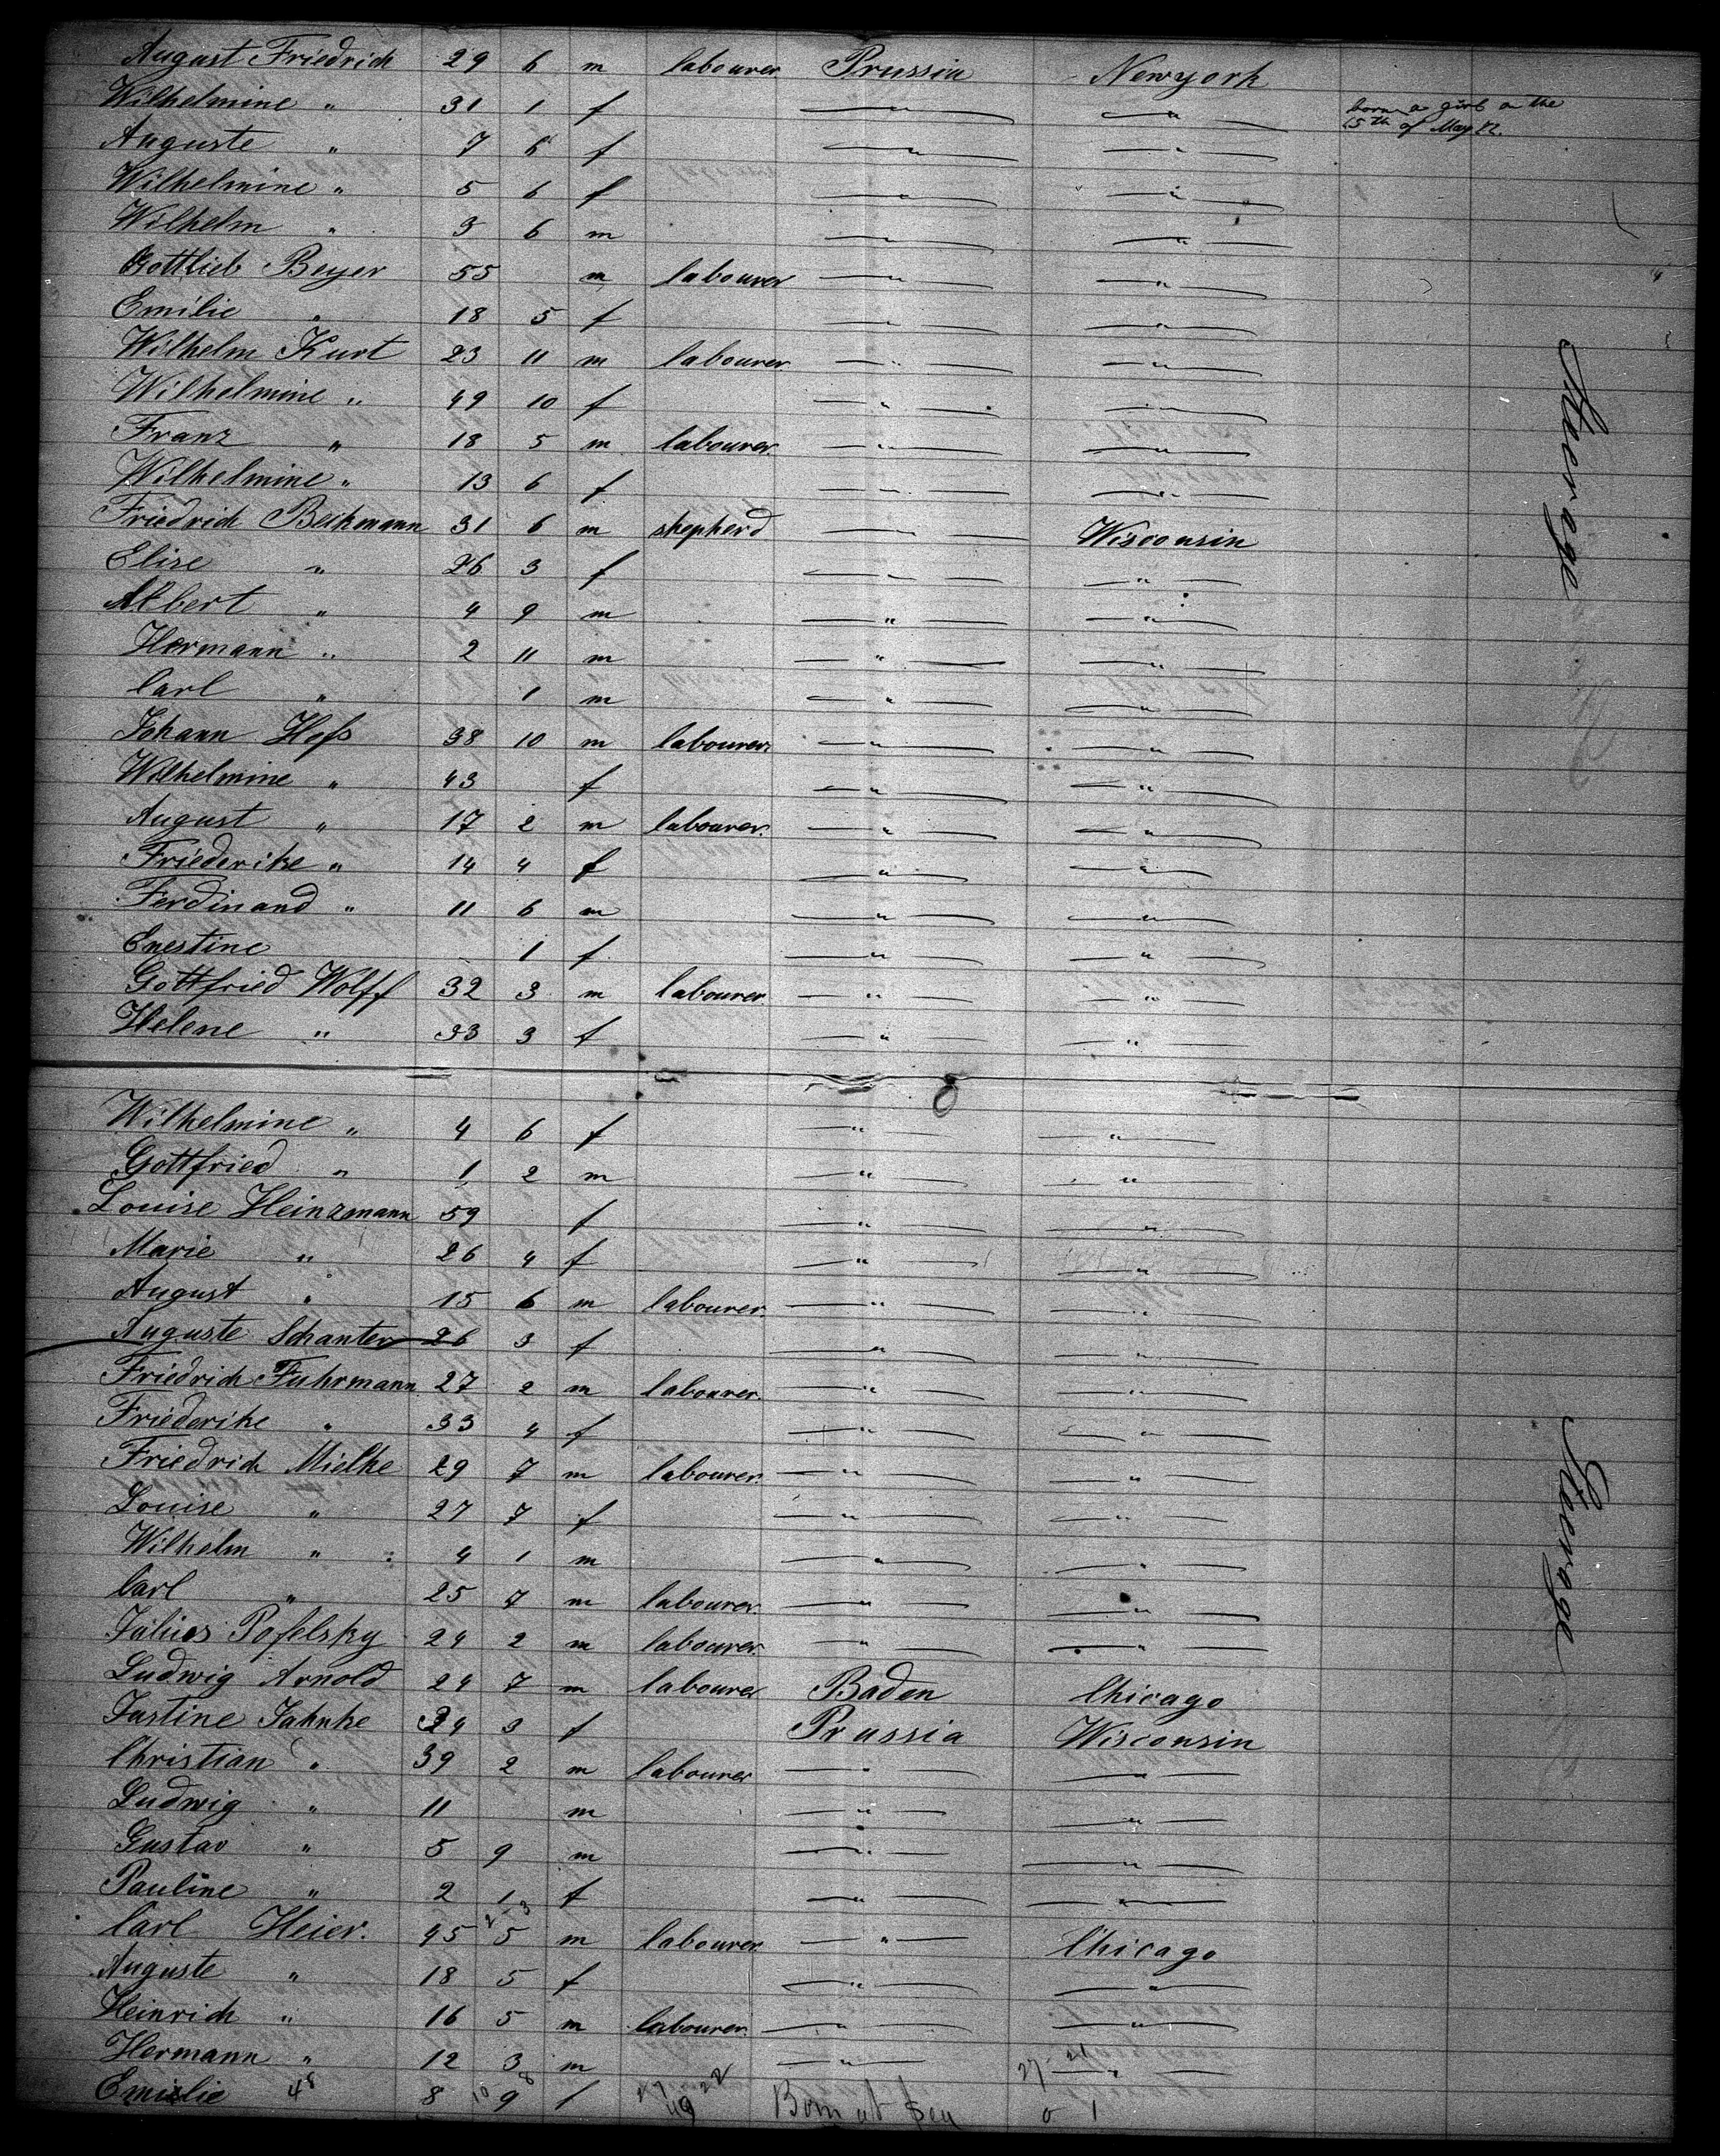 August Friedrich 29 6 m labourer Prussia Newyork
Wilhelmine " 31 1 f " " born a girl on the
15th of May 82.
Auguste " 7 6 f " "
Wilhelmine " 5 6 f " "
Wilhelm " 3 6 m " "
Gottlieb Beyer 55 m labourer " "
Emilie " 18 5 f " "
Wilhelm Kurt 23 11 m labourer " "
Wilhelmine " 49 10 f " "
Franz " 18 5 m labourer " "
Wilhelmine " 13 6 f " "
Friedrich Beckmann 31 6 m shepherd " Wisconsin
Elise " 26 3 f " "
Albert " 4 9 m " "
Hermann " 2 11 m " "
Carl " 1 m " "
Johann Hofs 38 10 m labourer " "
Wilhelmine " 43 f " "
August " 17 2 m labourer " "
Friederike " 14 4 f " "
Ferdinand " 11 6 m " "
Enestine 1 f " "
Gottfried Wolff 32 3 m labourer " "
Helene " 33 3 f " "
Steerage
Wilhelmine " 4 6 f " "
Gottfried " 1 2 m " "
Louise Heinzmann 59 f " "
Marie " 26 4 f " "
August " 15 6 m labourer " "
Auguste Schanter 26 3 f " "
Friedrich Fuhrmann 27 2 m labourer " "
Friederike " 33 4 f " "
Friedrich Mielke 29 7 m labourer " "
Louise " 27 7 f " "
Wilhelm " 4 1 m " "
Carl " 25 7 m labourer " "
Julius Pofelsky 24 2 m labourer " "
Ludwig Arnold 24 7 m labourer Baden Chicago
Justine Jahnke 34 3 f Prussia Wisconsin
Christian " 39 2 m labourer " "
Ludwig " 11 m " "
Gustav " 5 9 m " "
Pauline " 2 1 f " "
Carl Heier. 45 5 m labourer " Chicago
Auguste " 18 5 f " "
Heinrich " 16 5 m labourer " "
Hermann " 12 3 m " "
Emilie 48 8 9 f 49 Born at Sea 0 1
Steerage